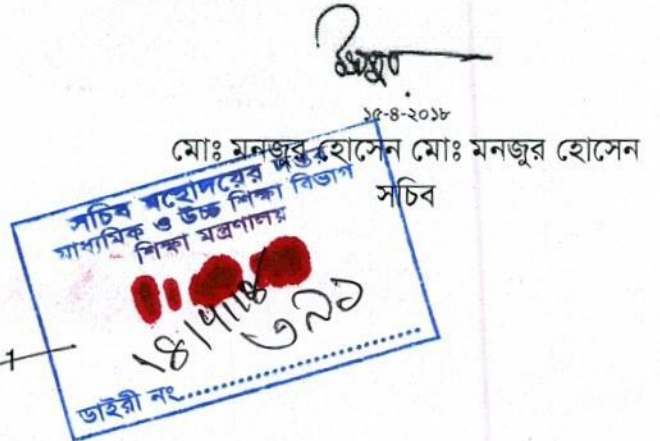 ১৫-৪-২০১৮
মোঃ মনজুর হোসেন মোঃ মনজুর হোসেন
সচিব
সচিব মহোদয়ের দপ্তর
মাধ্যমিক ও উচ্চ শিক্ষা বিভাগ
শিক্ষা মন্ত্রণালয়
৩৯১
ডাইরী নং